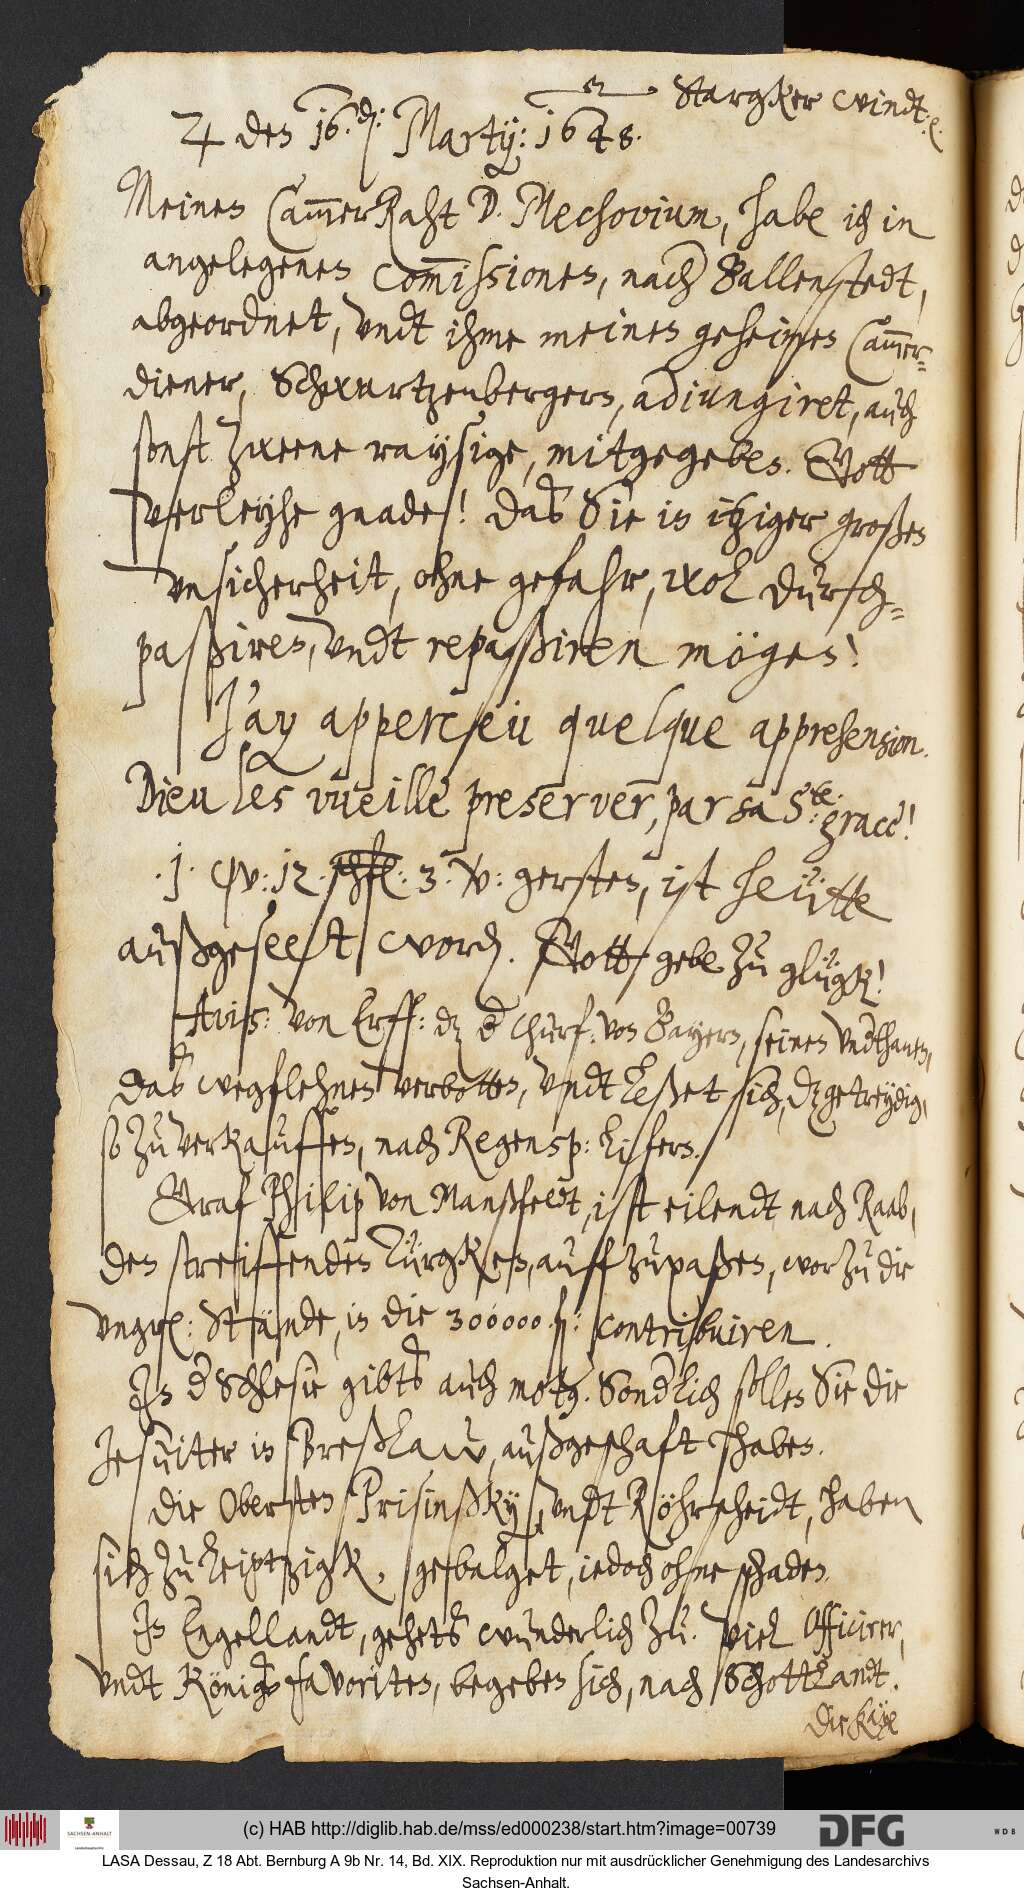 Stargker windt.
♃ den 16. Martij: 1648.
Meinen CammerRaht D. Mechovium, habe ich in
angelegenen Commissionen, nach Ballenstedt,
abgeordnet, vndt ihme meinen geheimen Cammer-
diener, Schwartzenbergern, adiungiret, auch
sonst zweene raysige, mitgegeben. Gott
verleyhe gnade! daß Sie in itziger großen
vnsicherheit, ohne gefahr, wol durch-
paßiren, vndt repaßiren mögen!
J'ay apperceü quelque apprehension.
Dieu les vueille preserver, par sa Ste: grace!
1. W: 12 3. V: gersten, ist heütte
außgeseet word. Gott gebe zu glügk!
Avis: von Erff: dz d Churf: von Bayern, seinen vndthanen,
daß wegflehnen verbotten, vndt leßet sich, dz getreydig,
so zu verkauffen, nach Regensp: lifern.
Graf Philip von Manßfeldt, ist eilendt nach Raab,
den streiffenden Türgken, auff zupaßen, worzu die
vngrl: Stände, in die 300000 fl: contribuiren.
In d Schlesie gibts auch motg. Sondlich sollen Sie die
Jesuiter in Breßlaw, außgeschaft haben.
Die Obersten Prisinßky, vndt Röhrscheidt, haben
sich zu Leiptzigk, gebalget, iedoch ohne schaden.
In Engellandt, gehets wunderlich zu. Viel Officirer,
vndt Königs favoriten, begeben sich, nach Schottlandt.
Die
(c) HAB http://diglib.hab.de/mss/ed000238/start.htm?image=00739
SACHSEN-ANHALT
DFG
WDB
LASA Dessau, Z 18 Abt. Bernburg A 9b Nr. 14, Bd. XIX. Reproduktion nur mit ausdrücklicher Genehmigung des Landesarchivs
Sachsen-Anhalt.